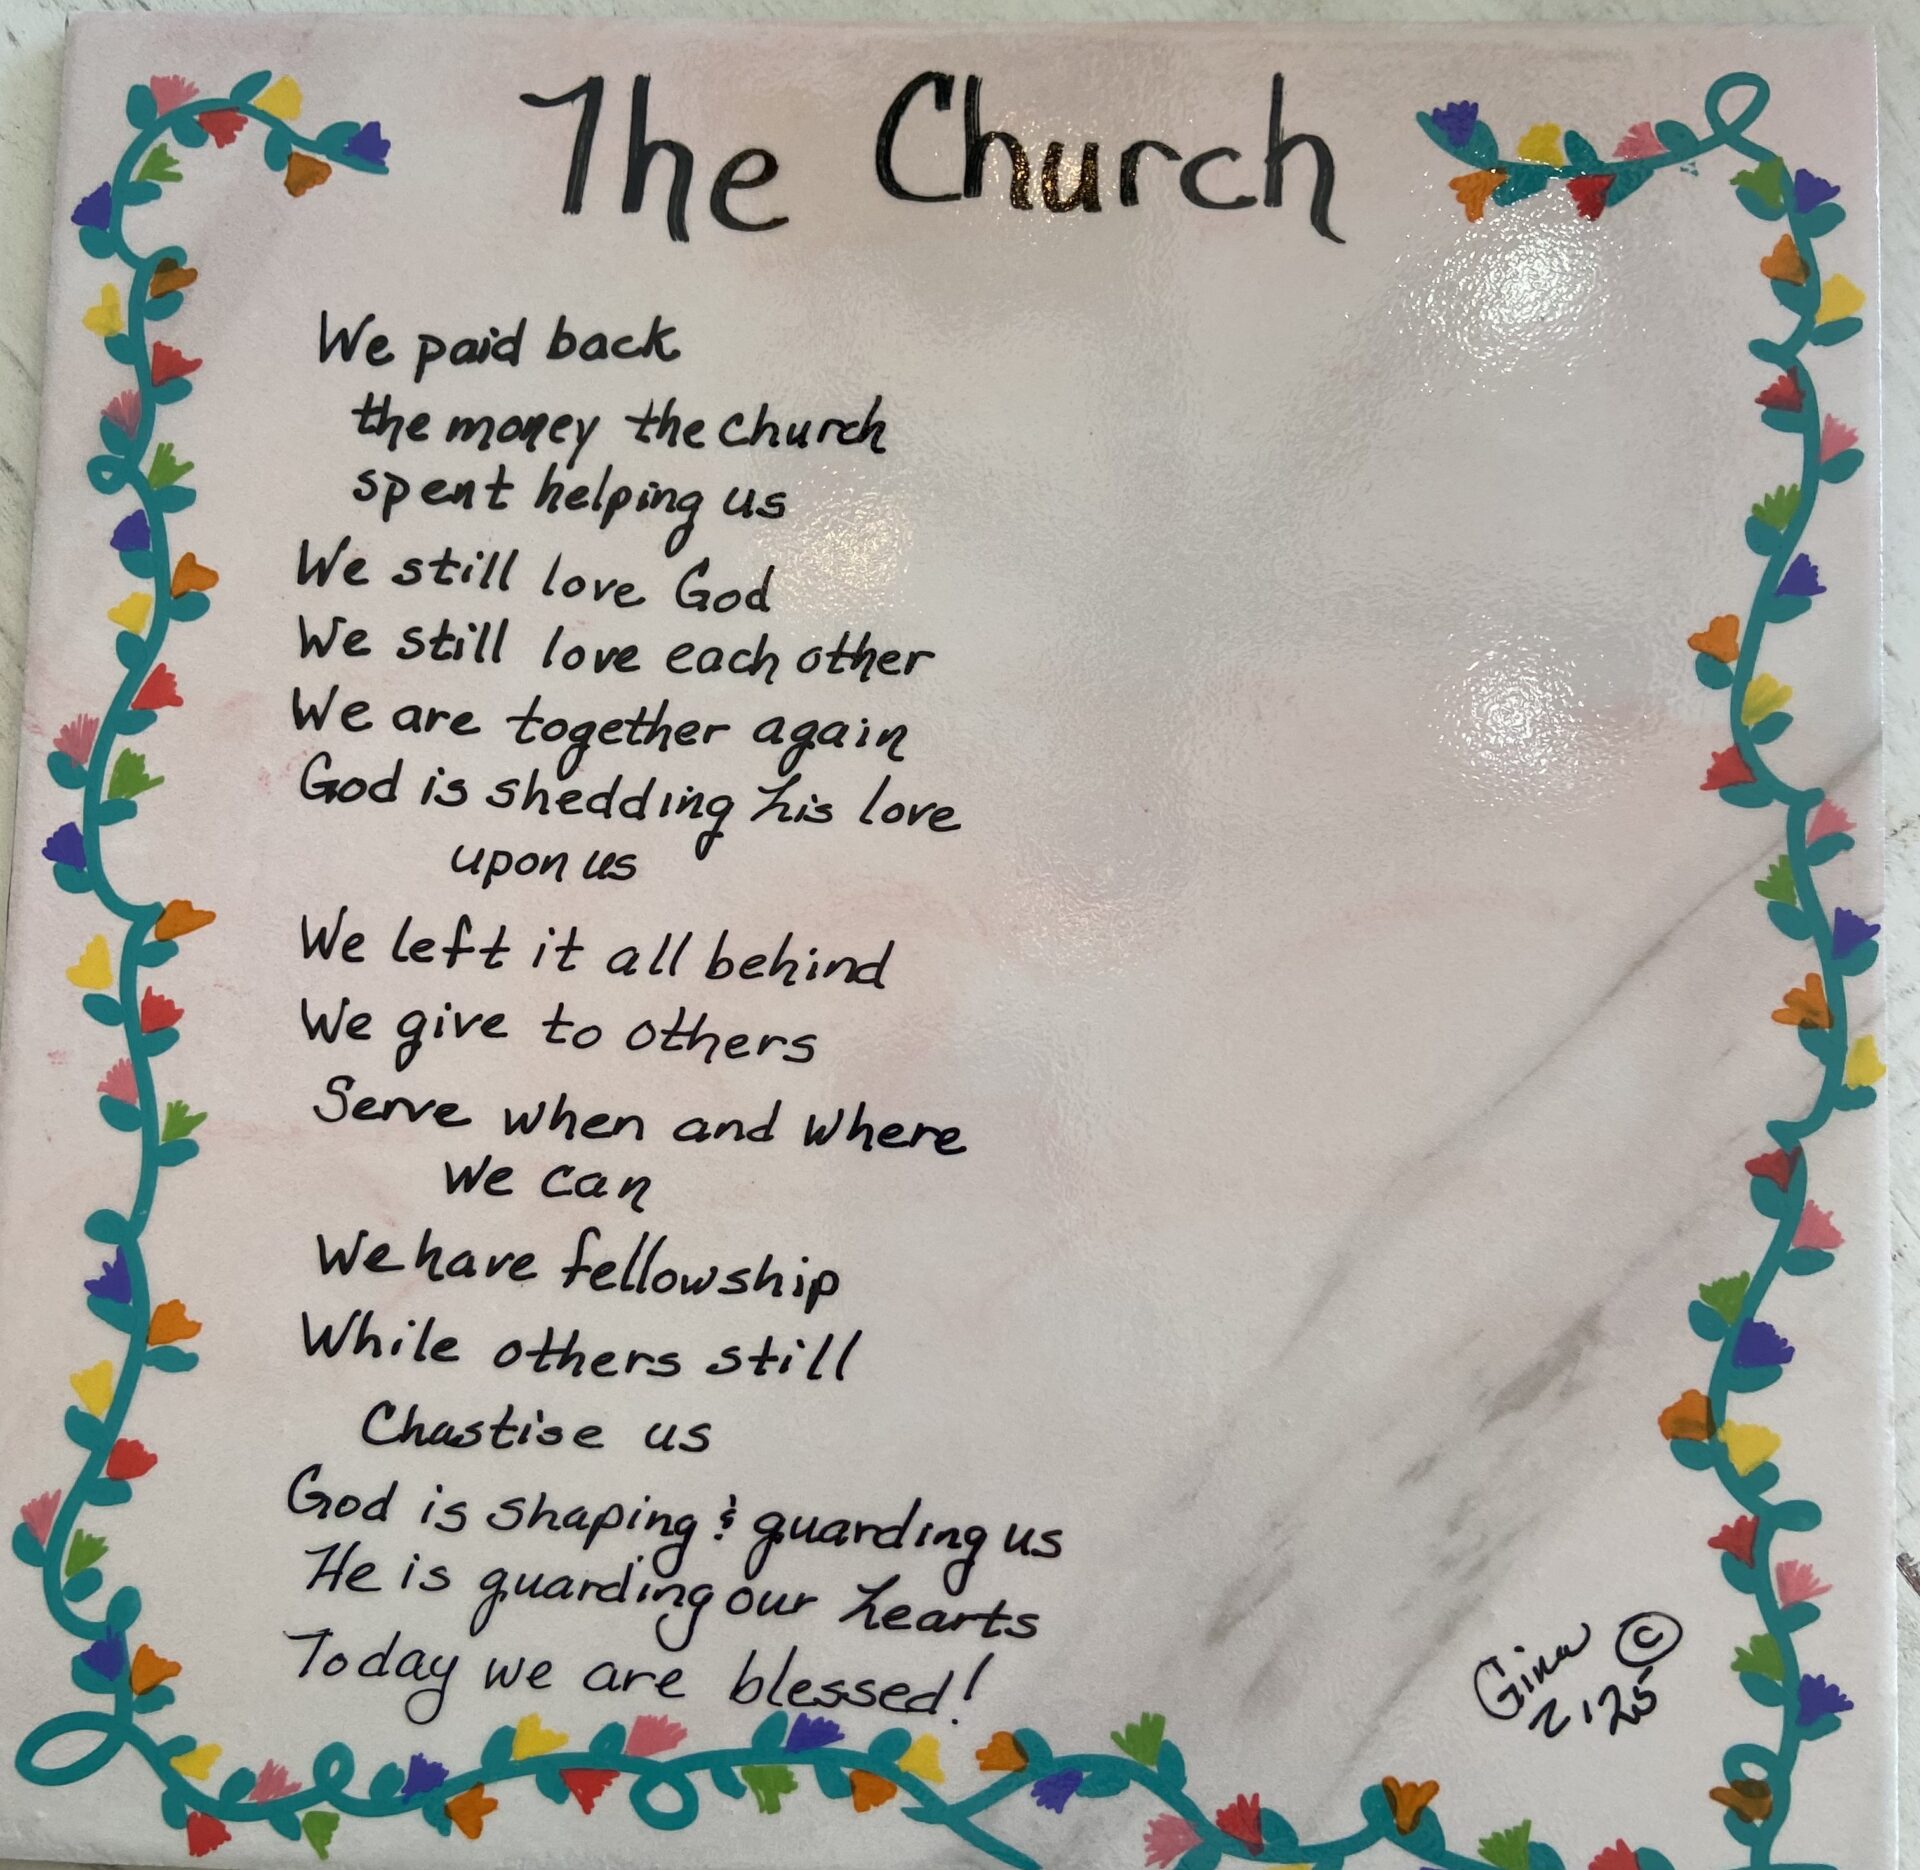 The Church
We paid back
the money the church
spent helping us
We still love God
We still love each other
We are together again
God is shedding his love
upon us
We left it all behind
We give to others
Serve when and where
we can
We have fellowship
While others still
Chastise us
God is shaping & guarding us
He is guarding our hearts
Today we are blessed!
Gina ©
2125